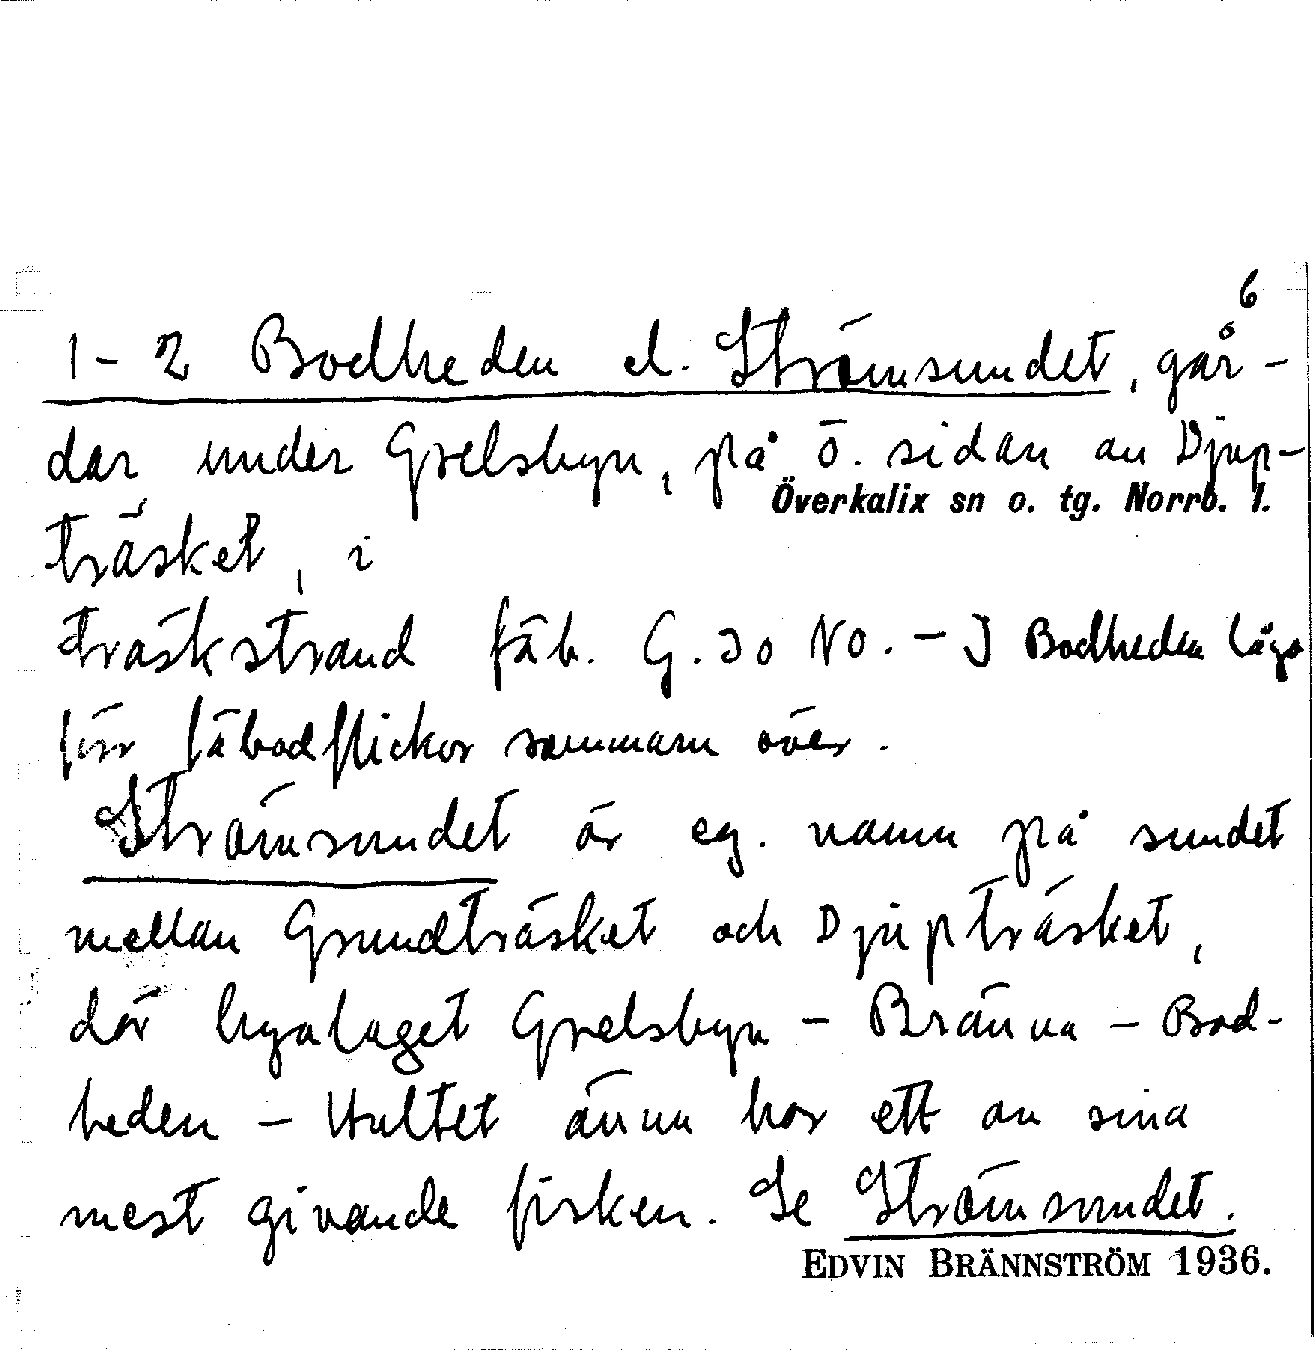 6
1-2 Bodheden el. Strömsundet, går-
dar under Grelsbyn, på ö. sidan av Djup-
Överkalix sn o. tg. Norrb. l.
träsket, i
träskstrand fäb. G. 30 NO. - I Bodheden lågo
förr fäbodflickor sommarn över.
Strömsundet är eg. namn på sundet
mellan Grundträsket och Djupträsket,
där byalaget Grelsbyn - Bränna - Bod-
heden - Hultet ännu har ett av sina
mest givande fisken. Se Strömsundet.
EDVIN BRÄNNSTRÖM 1936.